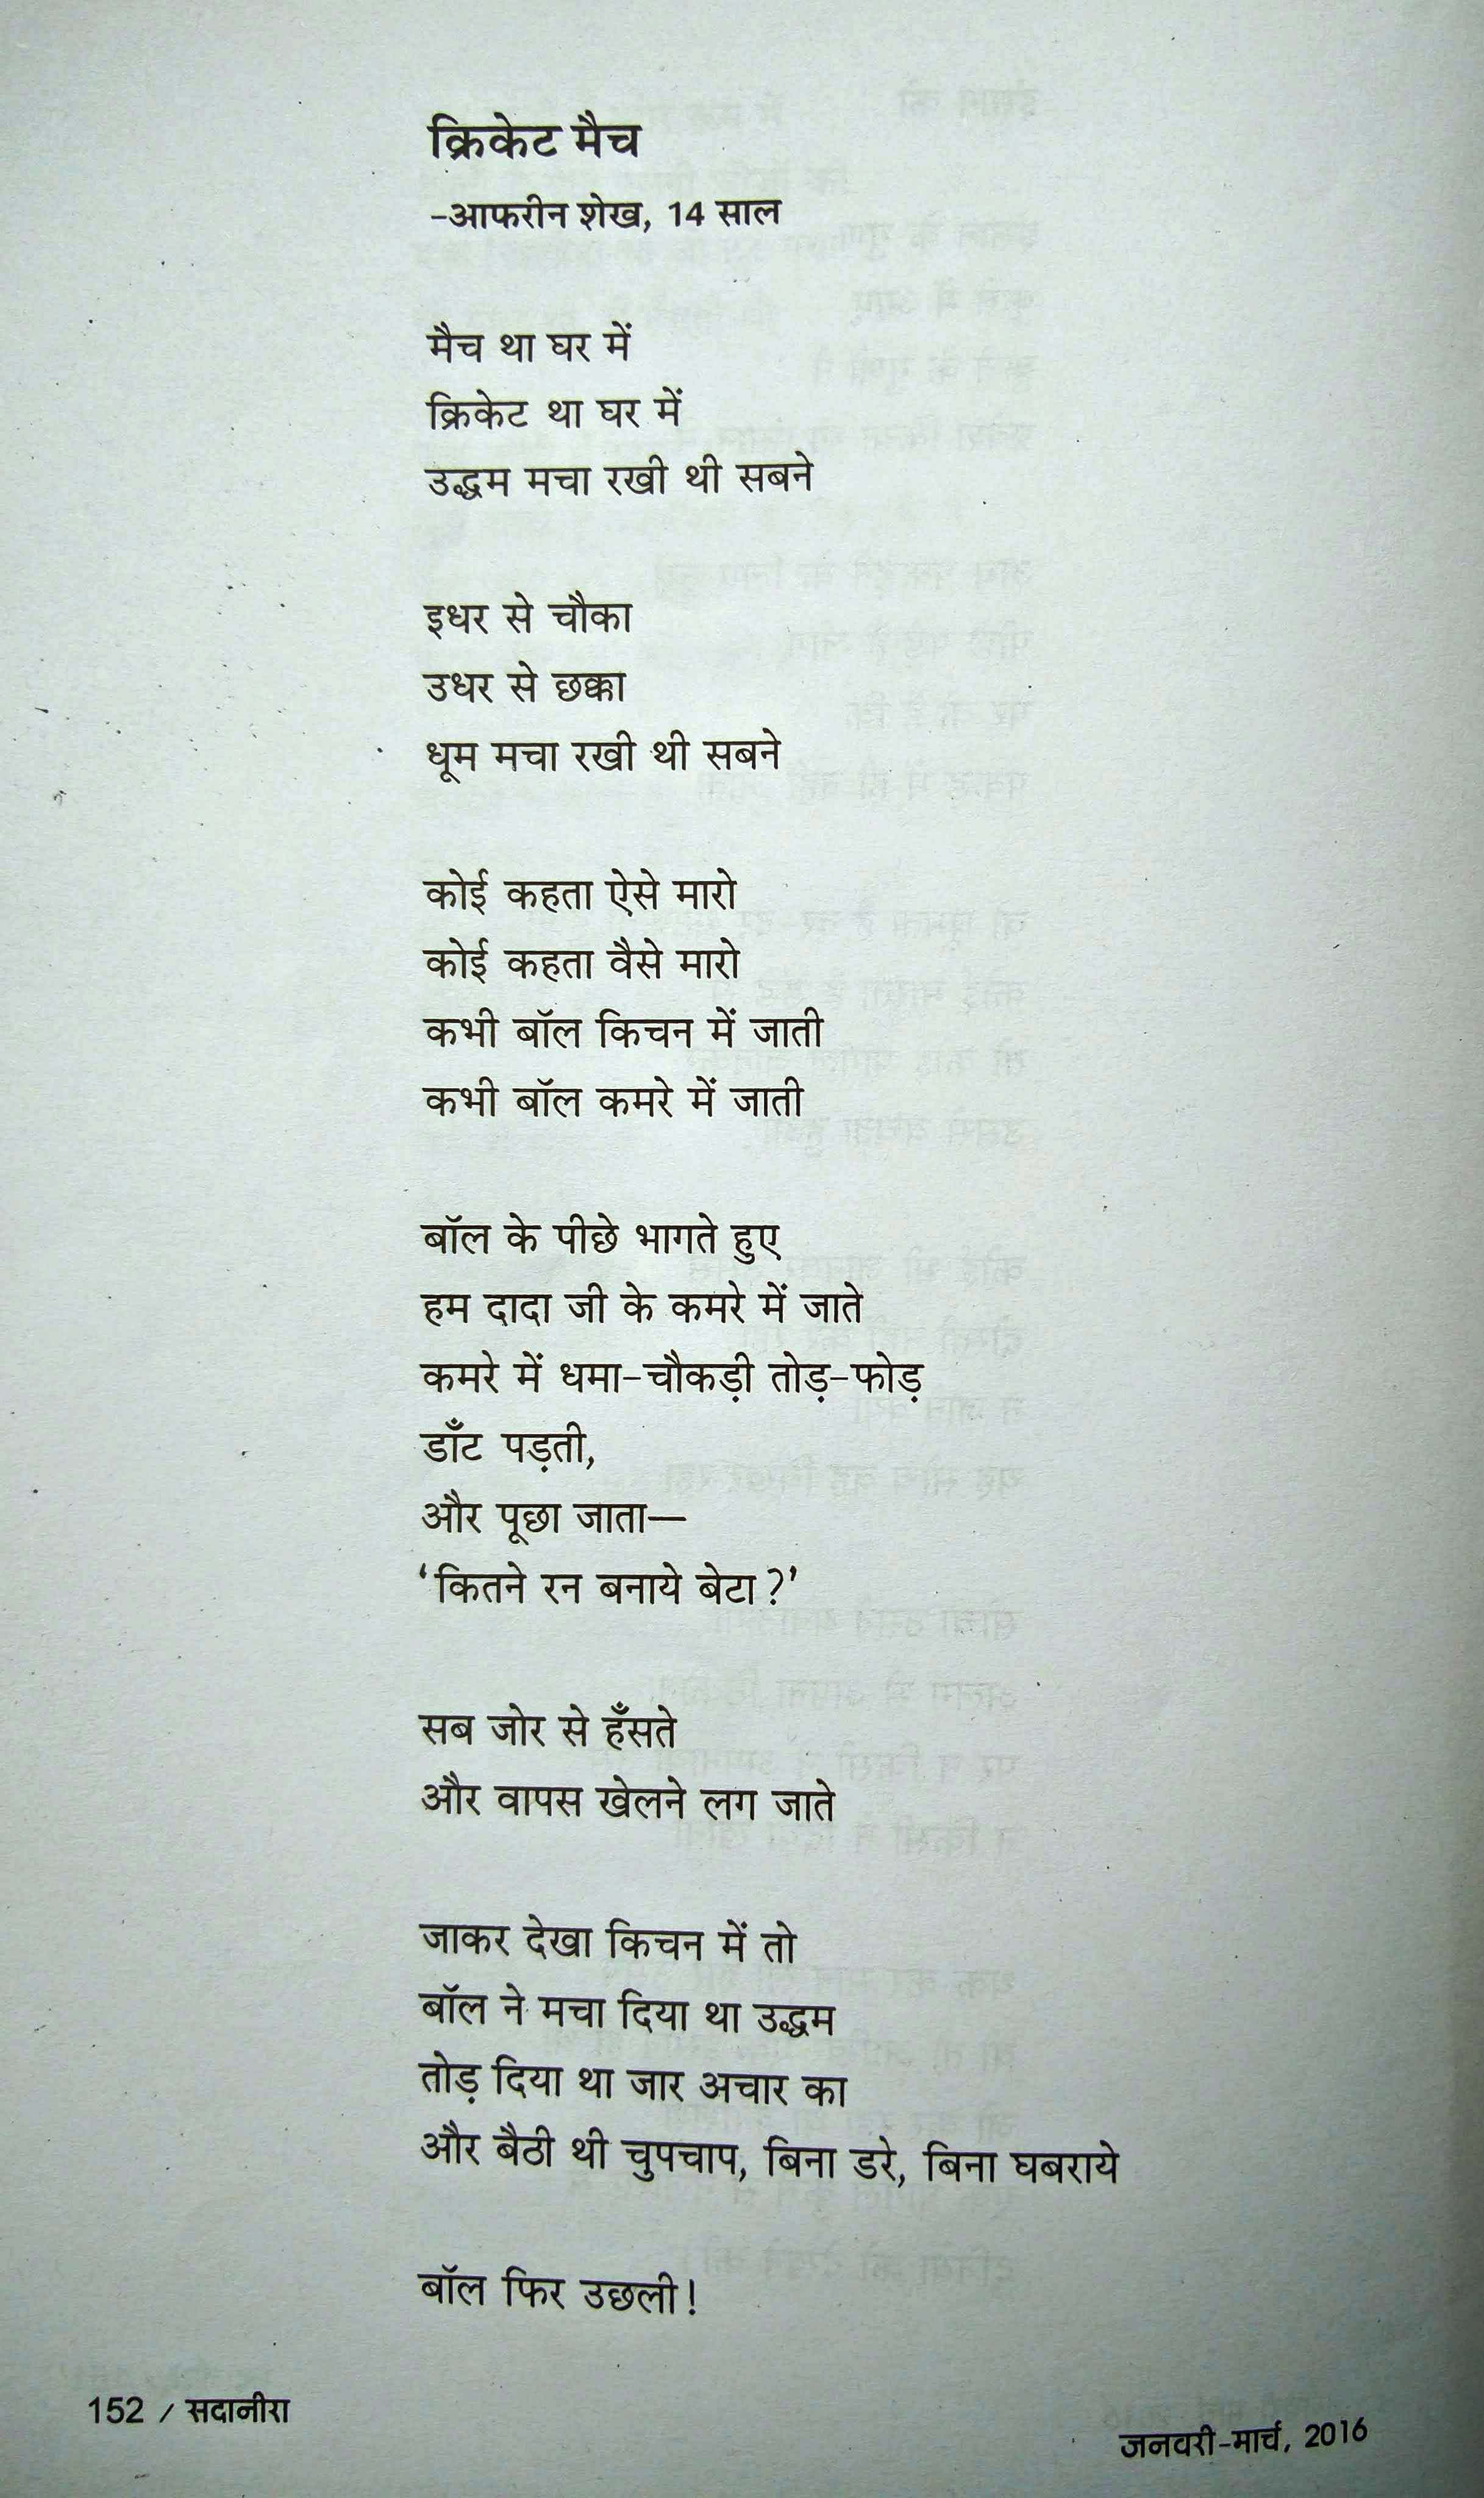 क्रिकेट मैच
-आफरीन शेख, 14 साल
मैच था घर में
क्रिकेट था घर में
उद्धम मचा रखी थी सबने
इधर से चौका
उधर से छक्का
धूम मचा रखी थी सबने
कोई कहता ऐसे मारो
कोई कहता वैसे मारो
कभी बॉल किचन में जाती
कभी बॉल कमरे में जाती
बॉल के पीछे भागते हुए
हम दादा जी के कमरे में जाते
कमरे में धमा-चौकड़ी तोड़-फोड़
डाँट पड़ती,
और पूछा जाता—
‘कितने रन बनाये बेटा?’
सब जोर से हँसते
और वापस खेलने लग जाते
जाकर देखा किचन में तो
बॉल ने मचा दिया था उद्धम
तोड़ दिया था जार अचार का
और बैठी थी चुपचाप, बिना डरे, बिना घबराये
बॉल फिर उछली!
152 / सदानीरा
जनवरी-मार्च, 2016